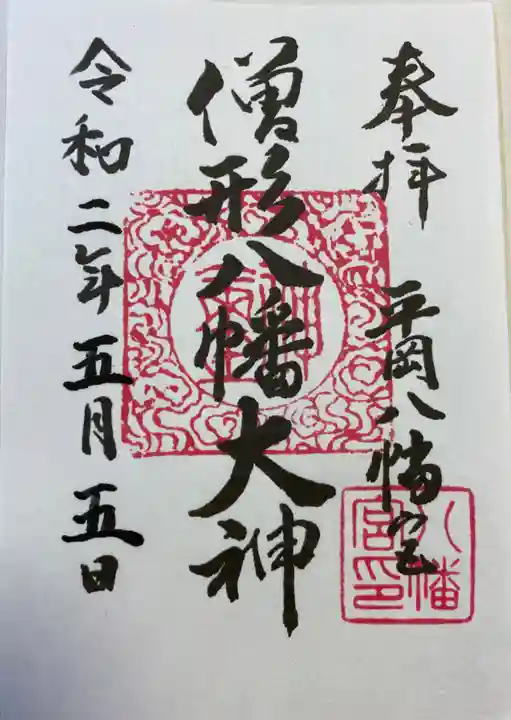 奉拝 平岡八幡宮
僧形八幡大神
令和二年五月五日
八幡
宮印